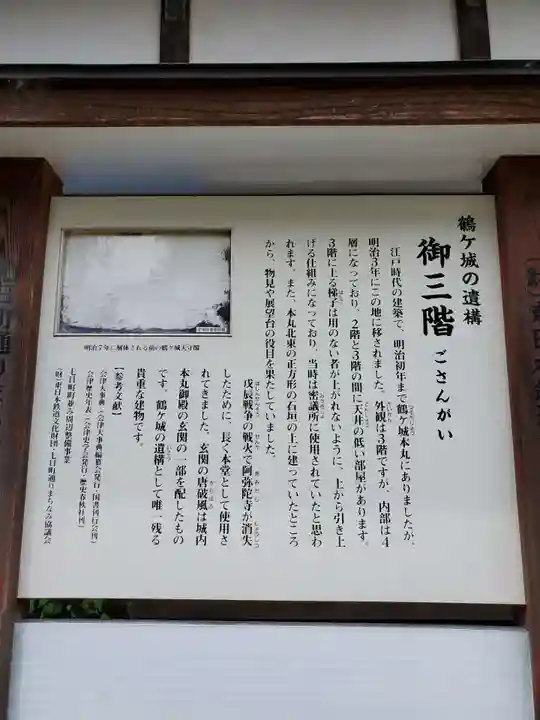 鶴ケ城の遺構
御三階 ごさんがい
江戸時代の建築で、明治初年まで鶴ケ城本丸にありましたが、
明治3年にこの地に移されました。外観は3階ですが、内部は4
層になっており、2階と3階の間に天井の低い部屋があります。
3階に上る梯子は用のない者が上がれないように、上から引き上
げる仕組みになっており、当時は密議所に使用されていたと思わ
れます。また、本丸北東の正方形の石垣の上に建っていたところ
から、物見や展望台の役目を果たしていました。
戊辰戦争の戦火で阿弥陀寺が消失
したために、長く本堂として使用さ
れてきました。玄関の唐破風は城内
本丸御殿の玄関の一部を配したもの
です。鶴ケ城の遺構として唯一残る
貴重な建物です。
【参考文献】
会津大事典(会津大事典編纂会発行/国書刊行会刊)
会津歴史年表(会津史学会発行/歴史春秋社刊)
七日町町並み周辺整備事業
(財)東日本鉄道文化財団・七日町通りまちなみ協議会
明治7年に解体される前の鶴ケ城天守閣